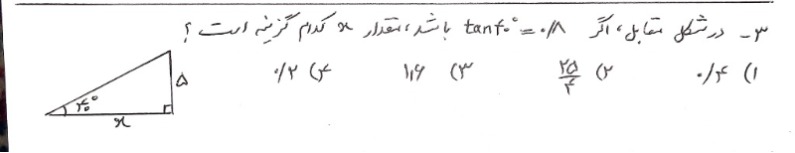 ۳- در شکل مقابل، اگر tan۴۰° = ۰/۸ باشد، مقدار x کدام گزینه است؟
۱) ۰/۴ ۲) ۲۵/۴ ۳) ۱/۶ ۴) ۰/۲
۵
۴۰°
x